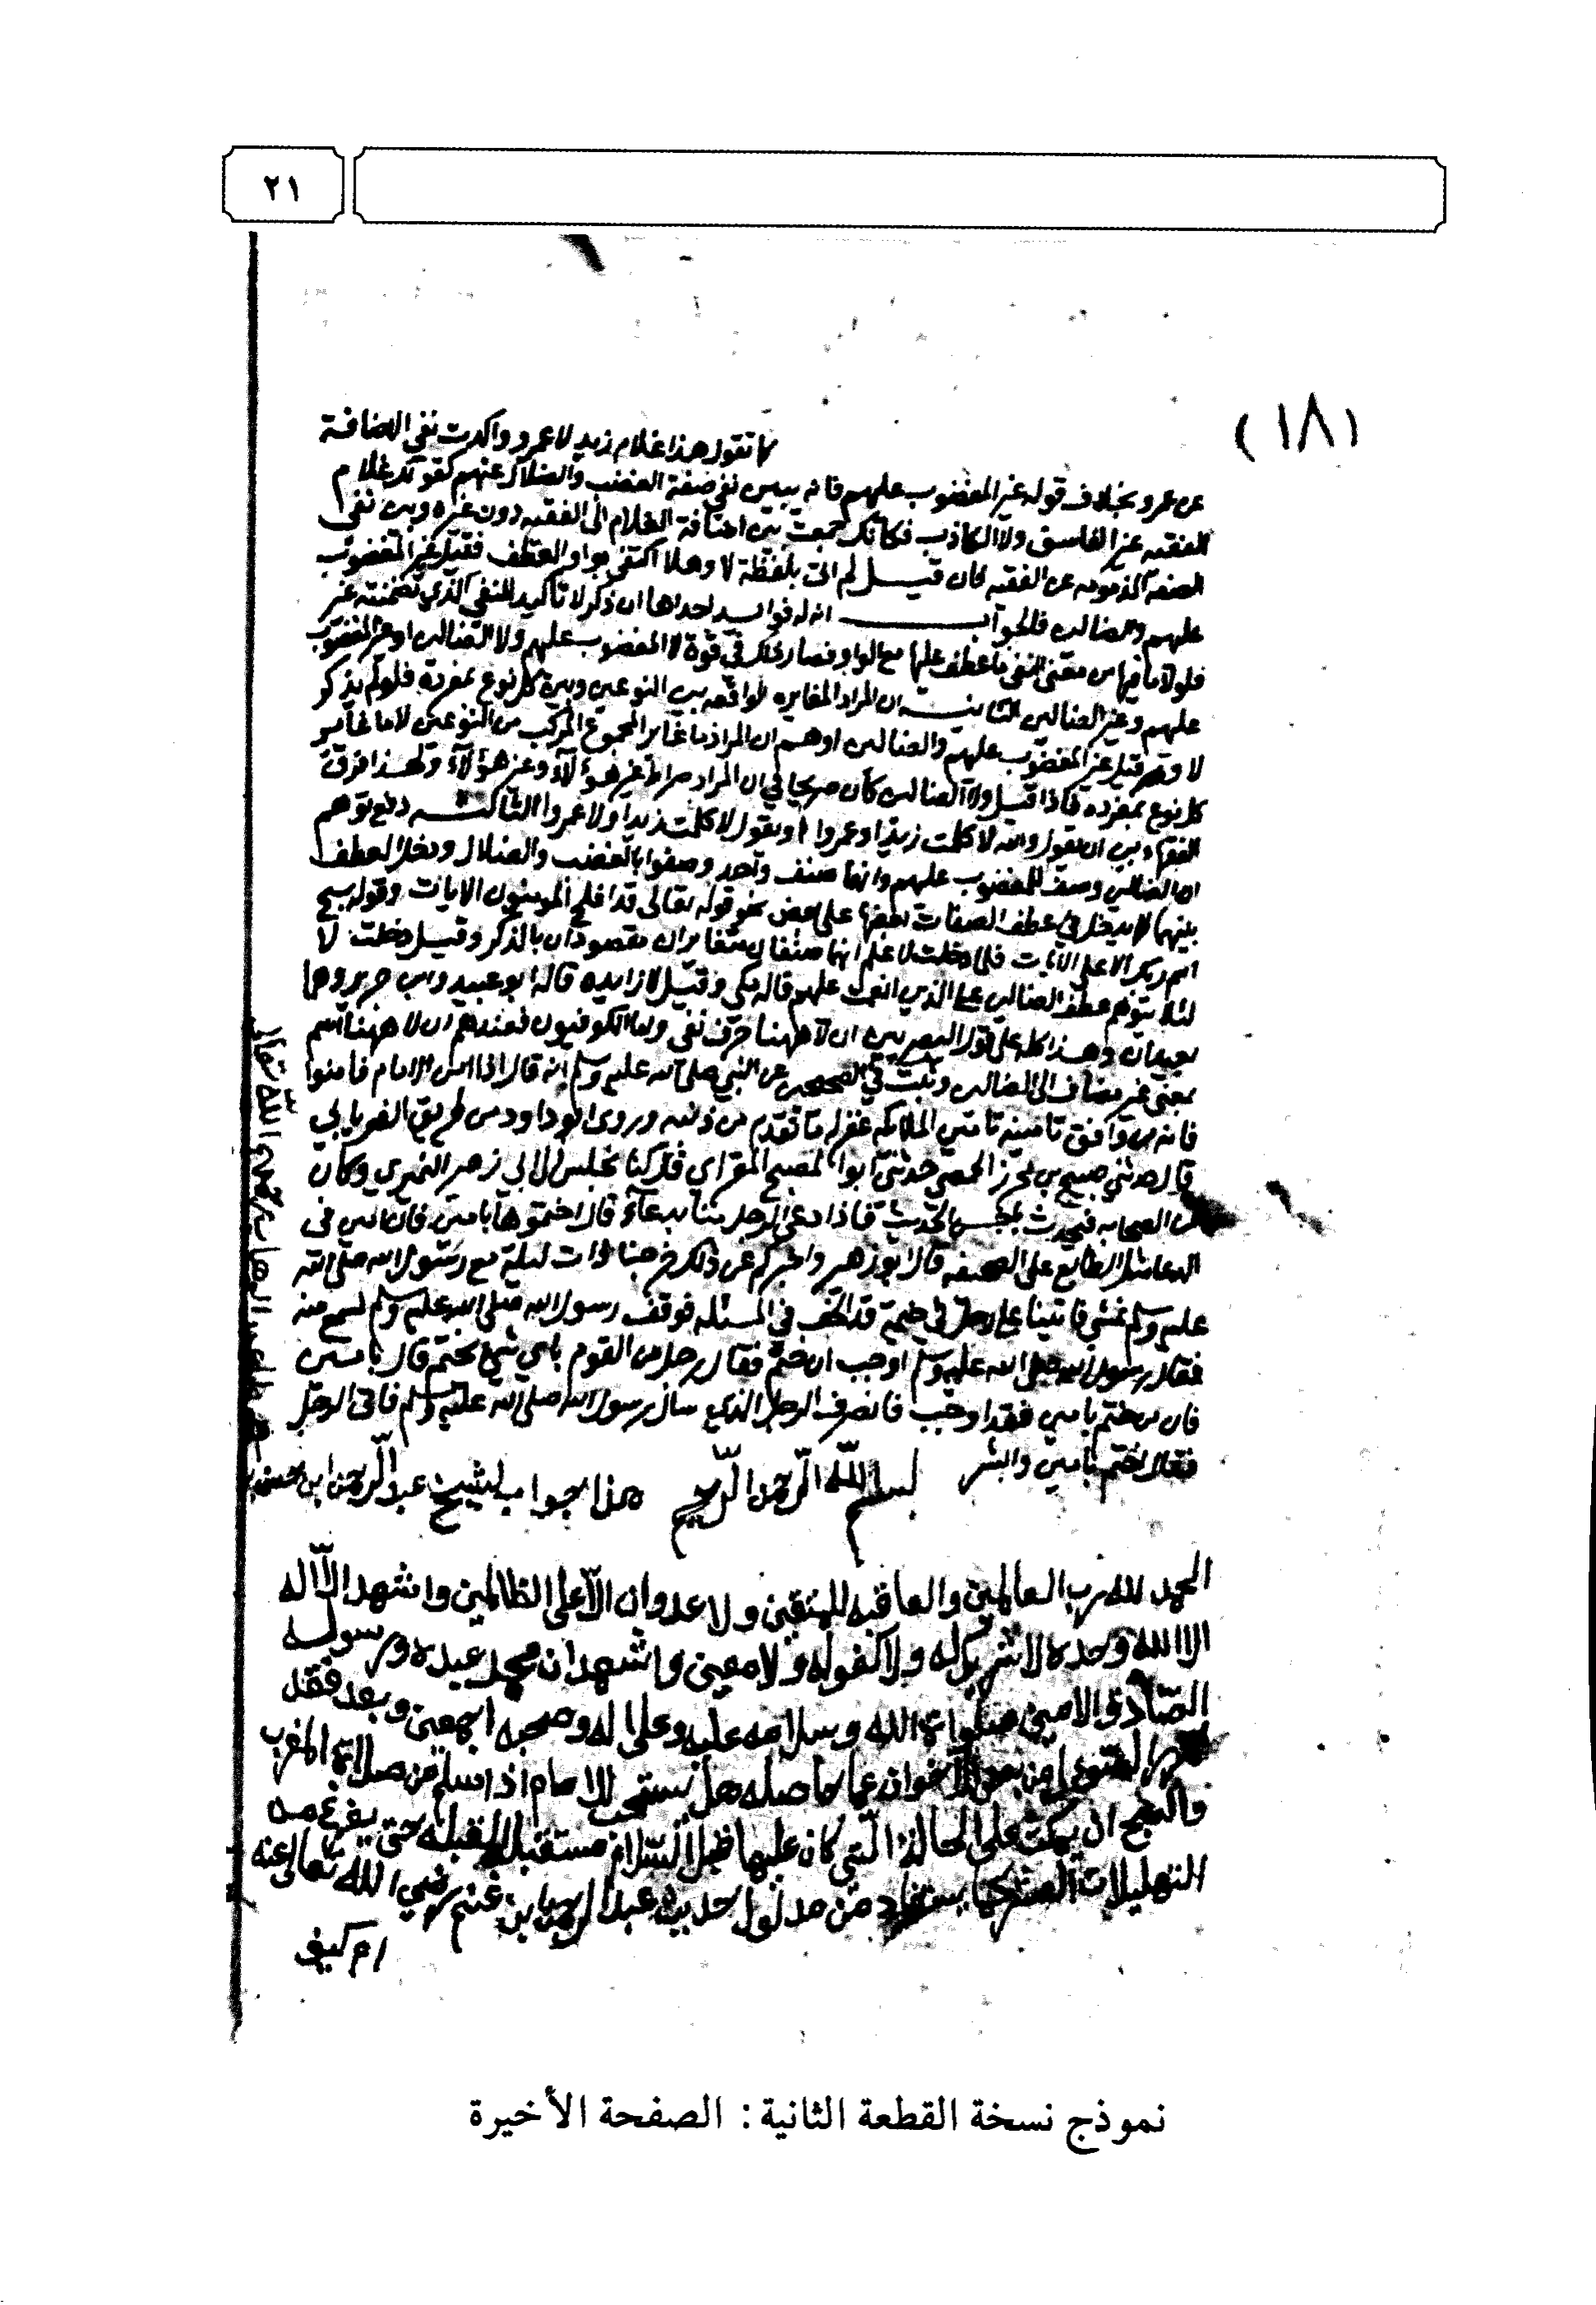 ٢١
(١٨)
كما تقول هذا غلام زيد لا عمرو واكدت نفي الاضافة
عن عمرو بخلاف قوله غير المغضوب عليهم فانه يبين نفي صفة الغضب والضلال عنهم كقولك غلام
الفقيه غير الفاسق ولا الكاذب فكانك جمعت بين اضافة الغلام الى الفقيه دون غيره وبين نفي
الصفة المذمومه عن الفقيه فان قيل لم اتى بلفظة لا وهلا اكتفى بواو العطف فقيل غير المغضوب
عليهم والضالين فالجواب انه له فوايد احداها ان ذكر لا تاكيد للنفي الذي تضمنته غير
فلولا ما فيها من معنى النفي ما عطف عليها مع الواو فصار ذلك في قوة لا المغضوب عليهم ولا الضالين او غير المغضوب
عليهم وغير الضالين الثانية ان المراد المغايره الواقعه بين النوعين وبين كل نوع بمفرده فلو لم يذكر
لا وقيل غير المغضوب عليهم والضالين اوهم ان المراد ما غاير المجموع المركب من النوعين لا ما غاير
كل نوع بمفرده فاذا قيل ولا الضالين كان صريحا في ان المراد صراط غير هؤلآء وغير هؤلآء ولهذا فرق
الفقهاء بين ان يقول والله لا كلمت زيدا وعمروا او يقول لا كلمت زيدا ولا عمروا الثالث دفع توهم
ان الضالين وصف للمغضوب عليهم وانها صنف واحد وصفوا بالغضب والضلال ودخل العطف
بينهما كما يدخل في عطف الصفات بعضها على بعض نحو قوله تعالى قد افلح المومنون الايات وقوله سبح
اسم ربك الاعلى الآيات فلما دخلت لا علم انها صنفان متغايران مقصودان بالذكر وقيل دخلت لا
لئلا يتوهم عطف الضالين على الذين انعمت عليهم قاله مكي وقيل لا زايده قاله ابو عبيد وابن جرير وهما
بعيدان وهذا كله على قول البصريين ان لا ههنا حرف نفي واما الكوفيون فعندهم ان لا ههنا اسم
بمعنى غير مضاف الى الضالين وثبت في الصحيحين عن النبي صلى الله عليه وسلم انه قال اذا امن الامام فامنوا
فانه من وافق تامينه تامين الملائكه غفر له ما تقدم من ذنبه وروى ابو داود من طريق الفريابي
قال حدثني صبيح بن محرز الحمصي حدثني ابو المصبح المقراي قال كنا نجلس الى ابي زهير النميري وكان
من الصحابه فيحدث بحسن الحديث فاذا دعى الرجل منا بدعآء قال اختموها بامين فان امين في
الدعا مثل الطابع على الصحيفه قال ابو زهير واخبركم عن ذلك خرجنا ذات ليلة مع رسول الله صلى الله
عليه وسلم نمشي فاتينا على رجل في خيمة قد الحف في المسئله فوقف رسول الله صلى الله عليه وسلم يسمع منه
فقال رسول الله صلى الله عليه وسلم اوجب ان ختم فقال رجل من القوم باي شي يختم قال بامين
فان من ختم بامين فقد اوجب فانصرف الرجل الذي سال رسول الله صلى الله عليه وسلم فاتى الرجل
فقال اختم بامين وابشر
بسم الله الرحمن الرحيم هذا جواب لشيخ عبد الرحمن ابن حسن
الحمد لله رب العالمين والعاقبه للمتقين ولا عدوان الا على الظالمين واشهد ان لا اله
الا الله وحده لا شريك له ولا كفو له ولا معين واشهد ان محمد عبده ورسوله
الصادق الامين صلواة الله وسلامه عليه وعلى اله وصحبه اجمعين وبعد فقد
من بعض الاخوان عما حاصله هل يستحب للامام اذا سلم من صلاة المغرب
والصبح ان يمكث على الحالة التي كان عليها قبل السلام مستقبل القبله حتى يفرغ من
التهليلات العشر كما يستفاد من مدلول حديث عبد الرحمن ابن غنم رضي الله تعالى عنه
ام كيف
نموذج نسخة القطعة الثانية: الصفحة الأخيرة